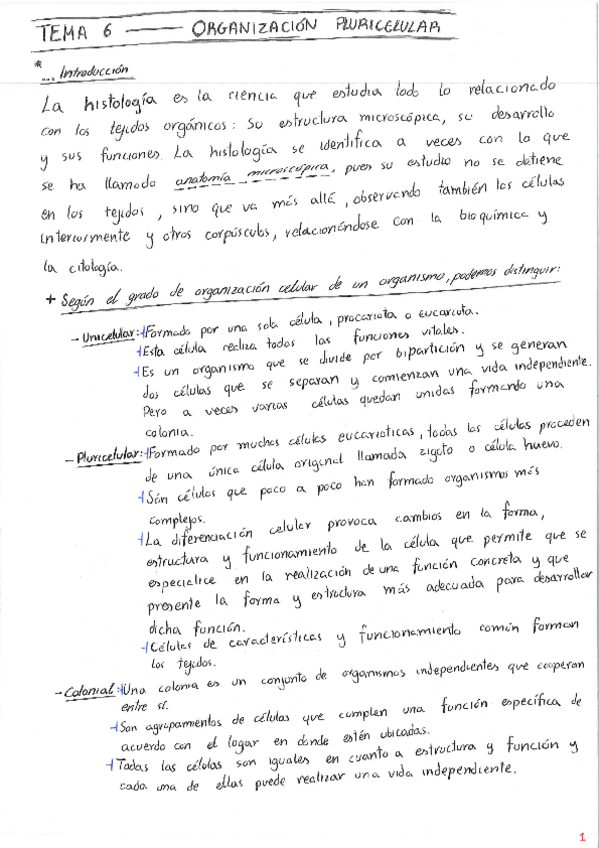 TEMA 6 —— ORGANIZACIÓN PLURICELULAR
* ... Introducción
La histología es la ciencia que estudia todo lo relacionado
con los tejidos orgánicos: Su estructura microscópica, su desarrollo
y sus funciones. La histología se identifica a veces con lo que
se ha llamado anatomía microscópica, pues su estudio no se detiene
en los tejidos, sino que va más allá, observando también las células
interiormente y otros corpúsculos, relacionándose con la bioquímica y
la citología.
+ Según el grado de organización celular de un organismo, podemos distinguir:
- Unicelular: Formado por una sola célula, procariota o eucariota.
Esta célula realiza todas las funciones vitales.
Es un organismo que se divide por bipartición y se generan
dos células que se separan y comienzan una vida independiente.
Pero a veces varias células quedan unidas formando una
colonia.
- Pluricelular: Formado por muchas células eucarióticas, todas las células proceden
de una única célula original llamada zigoto o célula huevo.
Són células que poco a poco han formado organismos más
complejos.
La diferenciación celular provoca cambios en la forma,
estructura y funcionamiento de la célula que permite que se
especialice en la realización de una función concreta y que
presente la forma y estructura más adecuada para desarrollar
dicha función.
Células de características y funcionamiento común forman
los tejidos.
- Colonial: Una colonia es un conjunto de organismos independientes que cooperan
entre sí.
Son agrupamientos de células que cumplen una función específica de
acuerdo con el lugar en donde estén ubicadas.
Todas las células son iguales en cuanto a estructura y función y
cada una de ellas puede realizar una vida independiente.
1